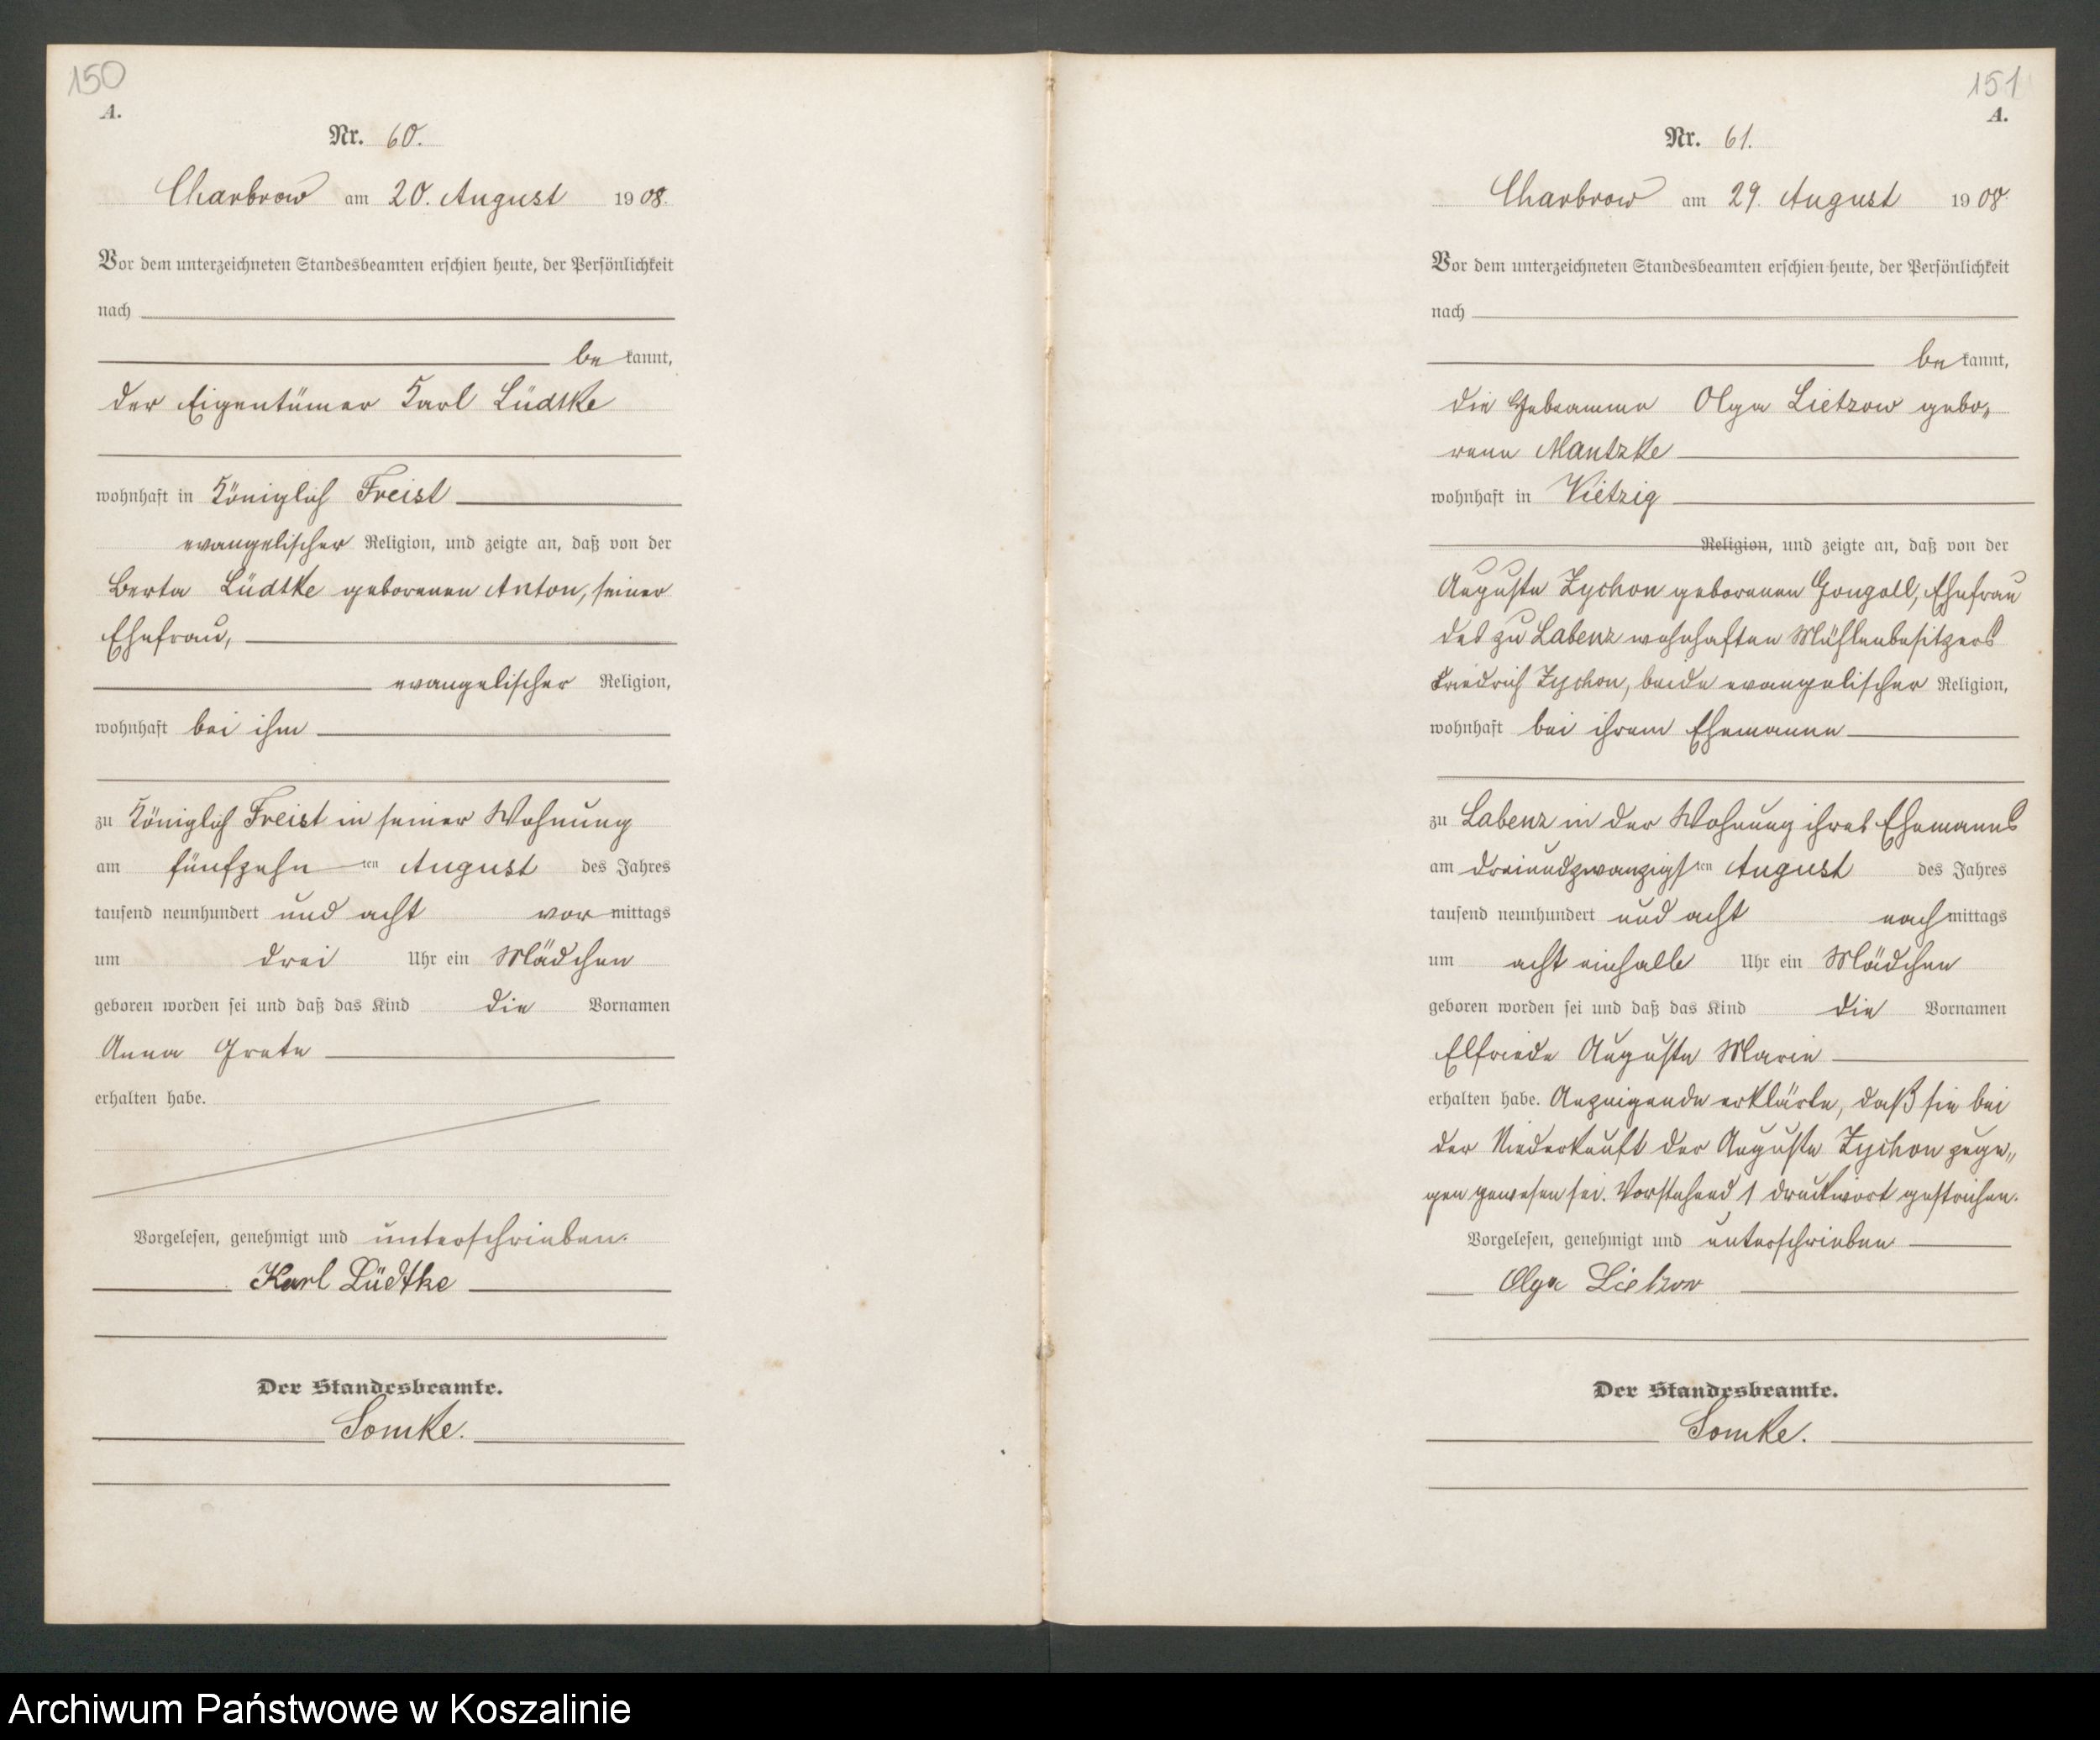 150
A.
Nr. 60.
Charbrow am 20. August 1908.
Vor dem unterzeichneten Standesbeamten erschien heute, der Persönlichkeit
nach
be kannt,
der Eigentümer Karl Lüdtke
wohnhaft in Königlich Freist
evangelischer Religion, und zeigte an, daß von der
Berta Lüdtke geborenen Anton, seiner
Ehefrau,
evangelischer Religion,
wohnhaft bei ihm
zu Königlich Freist in seiner Wohnung
am fünfzehn ten August des Jahres
tausend neunhundert und acht vor mittags
um drei Uhr ein Mädchen
geboren worden sei und daß das Kind die Vornamen
Anna Grete
erhalten habe.
Vorgelesen, genehmigt und unterschrieben.
Karl Lüdtke
Der Standesbeamte.
Somke.
151
A.
Nr. 61.
Charbrow am 29. August 1908.
Vor dem unterzeichneten Standesbeamten erschien heute, der Persönlichkeit
nach
be kannt,
die Hebeamme Olga Lietzow gebo„
rene Mantzke
wohnhaft in Vietzig
Religion, und zeigte an, daß von der
Auguste Zychon geborenen Gongoll, Ehefrau
des zu Labenz wohnhaften Mühlenbesitzers
Friedrich Zychon, beide evangelischer Religion,
wohnhaft bei ihrem Ehemanne
zu Labenz in der Wohnung ihres Ehemanns
am dreiundzwanzigs ten August des Jahres
tausend neunhundert und acht nach mittags
um acht einhalb Uhr ein Mädchen
geboren worden sei und daß das Kind die Vornamen
Elfriede Auguste Marie
erhalten habe. Anzeigende erklärte, daß sie bei
der Niederkunft der Auguste Zychon zuge„
gen gewesen sei. Vorstehend 1 Druckwort gestrichen.
Vorgelesen, genehmigt und unterschrieben
Olga Lietzow
Der Standesbeamte.
Somke.
Archiwum Państwowe w Koszalinie